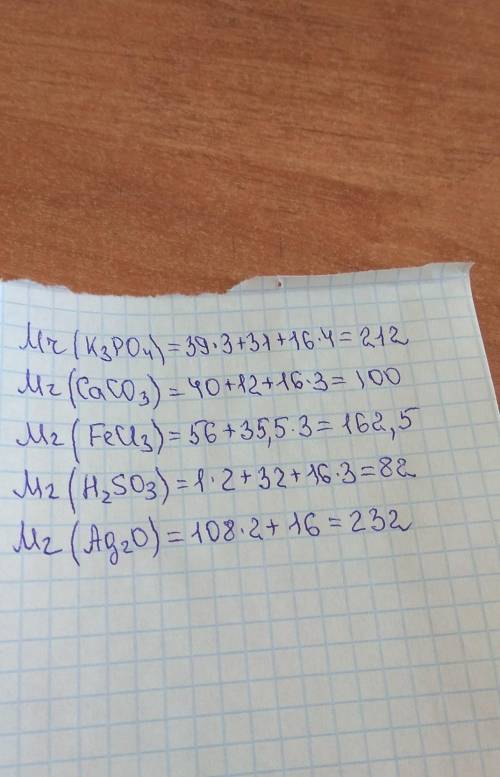 Mr (K₃PO₄) = 39·3+31+16·4 = 212
Mr (CaCO₃) = 40+12+16·3 = 100
Mr (FeCl₃) = 56+35,5·3 = 162,5
Mr (H₂SO₃) = 1·2+32+16·3 = 82
Mr (Ag₂O) = 108·2+16 = 232